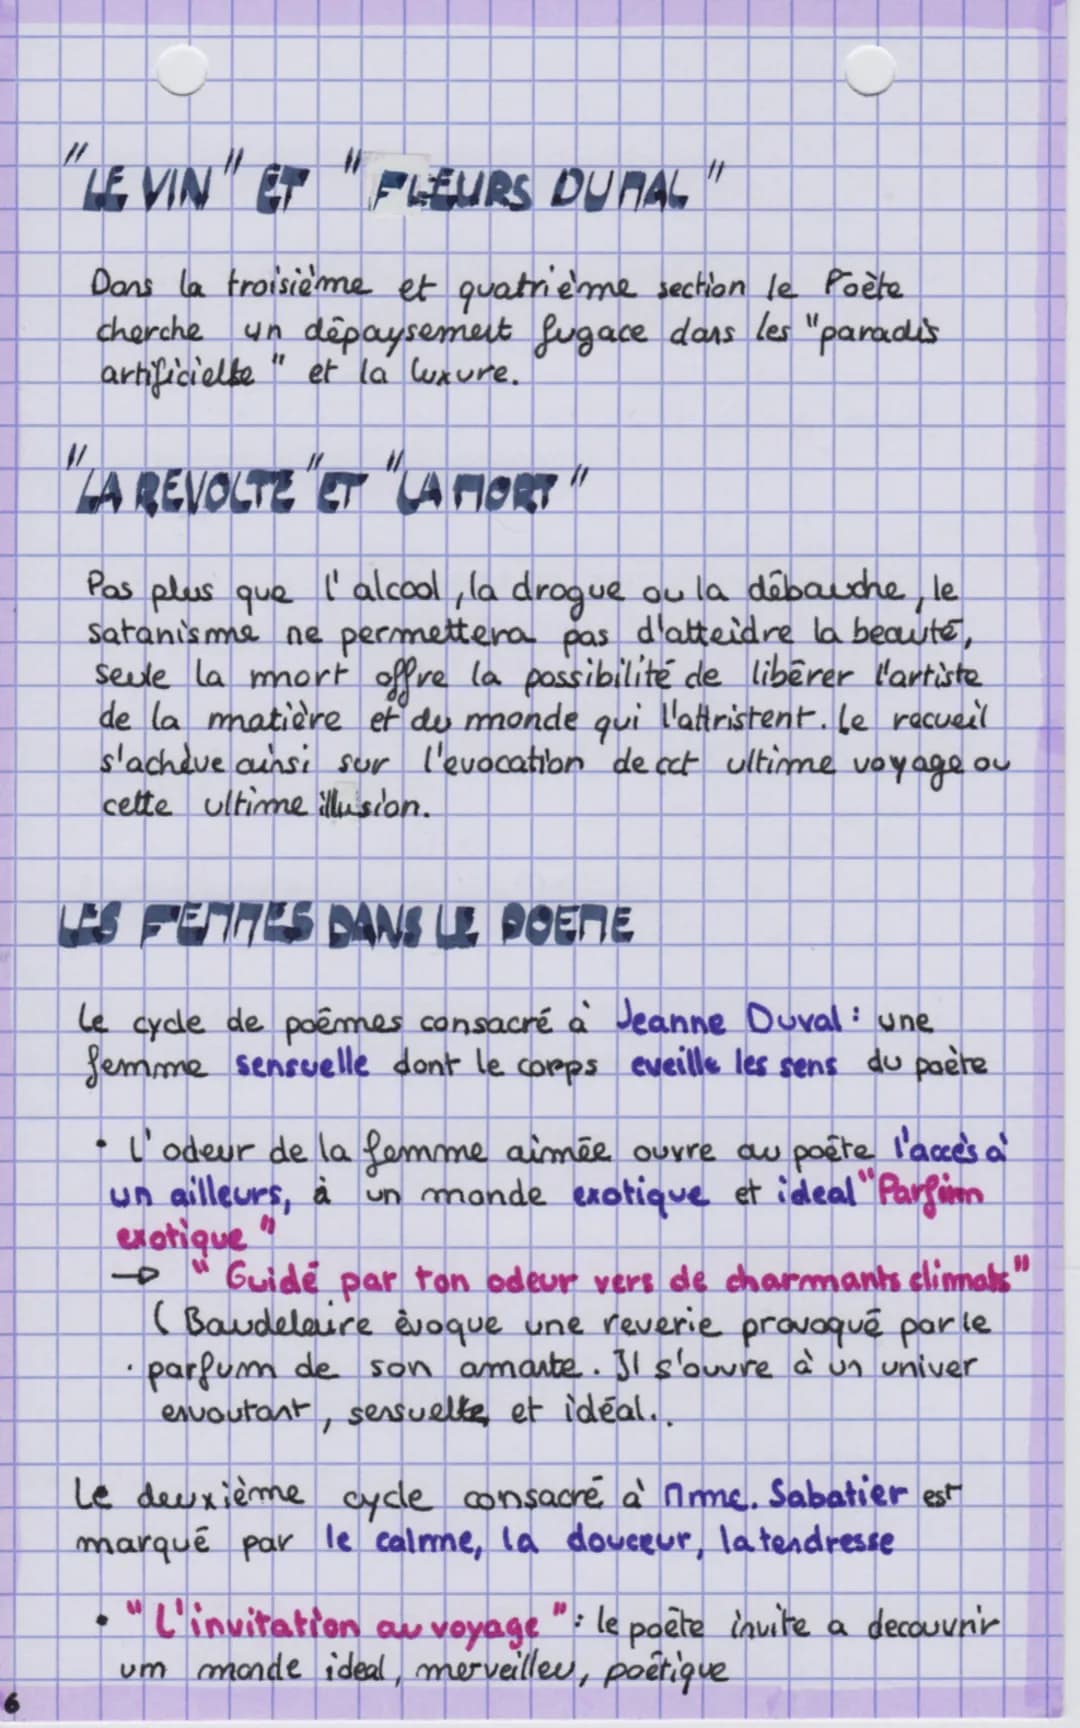 "LE VIN" ET "FLEURS DU MAL"
Dans la troisième et quatrième section le Poète
cherche un dépaysement fugace dans les "paradis
artificielle" et la luxure.
"LA REVOLTE" ET "LA MORT"
Pas plus que l'alcool, la drogue ou la débauche, le
satanisme ne permettera pas d'atteidre la beauté,
seule la mort offre la possibilité de libérer l'artiste
de la matière et du monde qui l'attristent. Le recueil
s'achève ainsi sur l'evocation de cet ultime voyage ou
cette ultime illusion.
LES FEMMES DANS LE POEME
Le cycle de poèmes consacré à Jeanne Duval : une
femme sensuelle dont le corps eveille les sens du poète
• L'odeur de la femme aimée ouvre au poète l'accès à
un ailleurs, à un monde exotique et ideal "Parfum
exotique"
→ "Guidé par ton odeur vers de charmants climats"
( Baudelaire èvoque une reverie provoqué par le
parfum de son amante. Il s'ouvre à un univer
envoutant, sensuelle et idéal.
Le deuxième cycle consacré à Mme. Sabatier est
marqué par le calme, la douceur, la tendresse
• "L'invitation au voyage" : le poète invite a decouvrir
um monde ideal, merveilleu, poétique
6